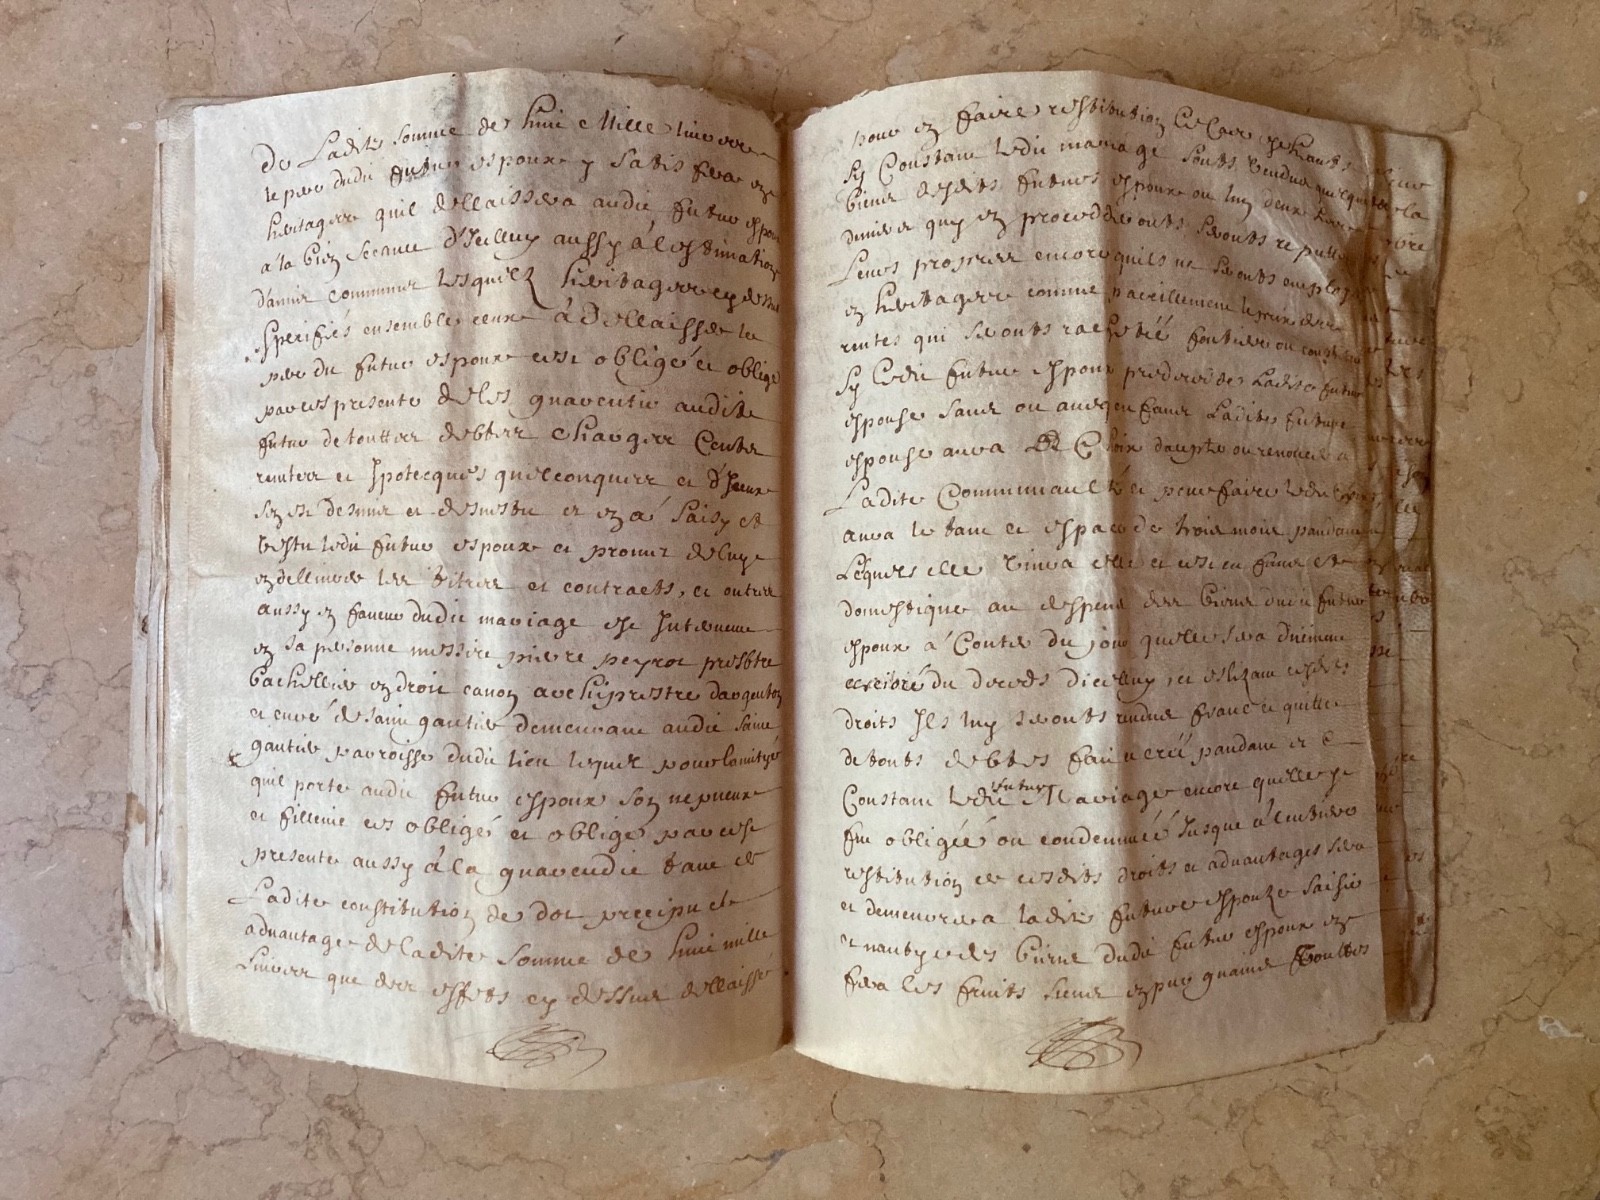 De Ladite somme de huict Mille livres
le pere dudit futur espoux y satis fera en
heritages quil dellaissera audit futur espoux
a la bien seance d'Icelluy aussy a l'estimation
d'amis communs lesquelz heritages cy dessus
speciffiés ensemble ceux à dellaisser le
pere du futur espoux cest obligé et oblige
par ces presente de les guarentir audit
futur de touttes debtes charges Cens
rentes et Ipotecques quelconques et d'Iceux
sen est desmis et desvestu et en a saisy et
vestu ledit futur espoux et promet de luy
en dellivrer les tiltres et contracts, et outre
aussy en faveur dudit mariage est Intervenu
en sa personne messire pierre peyrot presbtre
bachellier en droit canon archiprestre dargenton
et curé de saint gautier demeurant audit saint
gautier parroisse dudit lieu lequel pour lamityé
quil porte audit futur espoux son nepveux
et filleul ces obligé et oblige par cest
presente aussy à la guarendie tant de
Ladite constitution de dot precipu et
advantage de ladite somme de huict mille
Livres que des effets cy dessus dellaissé
pour en faire restitution Le cas escheant
Sy Constant ledit mariage sonts vendus quelques
biens desdits futurs espoux ou luy deux les
deniers quy en procedderonts seronts reputtés
Leurs propres encore quils ne seronts employés
en heritages comme pareillement le prix des
rentes qui seronts rachetté
Sy Ledit futur espoux predecede Ladite future
espouse sans ou avecq enfans Ladite future
espouse aura Le Choix daccepter ou renoncer a
Ladite Communaulté et pour faire ledit choix
aura le tans et espace de trois mois pandant
Lesquels elle vivra elle et ses enfans et
domestique au despens des biens dudit futur
espoux à Conter du jour quelle sera
du deces dicelluy, et eslizant cesdits
droits Ils luy seronts rendus franc et quitte
de touts debtes fait ne creé pandant et
Constant ledit futur Mariage encore quelle se
fut obligéé ou condemnéé Jusque à l'entiere
restitution de cesdits droits et advantages sera
et demeurera ladite future espouze saisie
et nantye des biens dudit futur espoux en
fera les fruits siens en pur guains Touttes